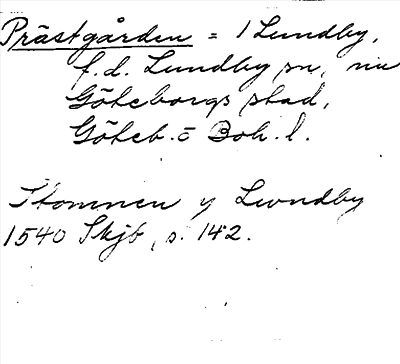 Prästgården = 1 Lundby,
f.d. Lundby sn, nu
Göteborgs stad,
Göteb. o Boh. l.
Stommen y Lwndby
1540 Skjb, s. 142.